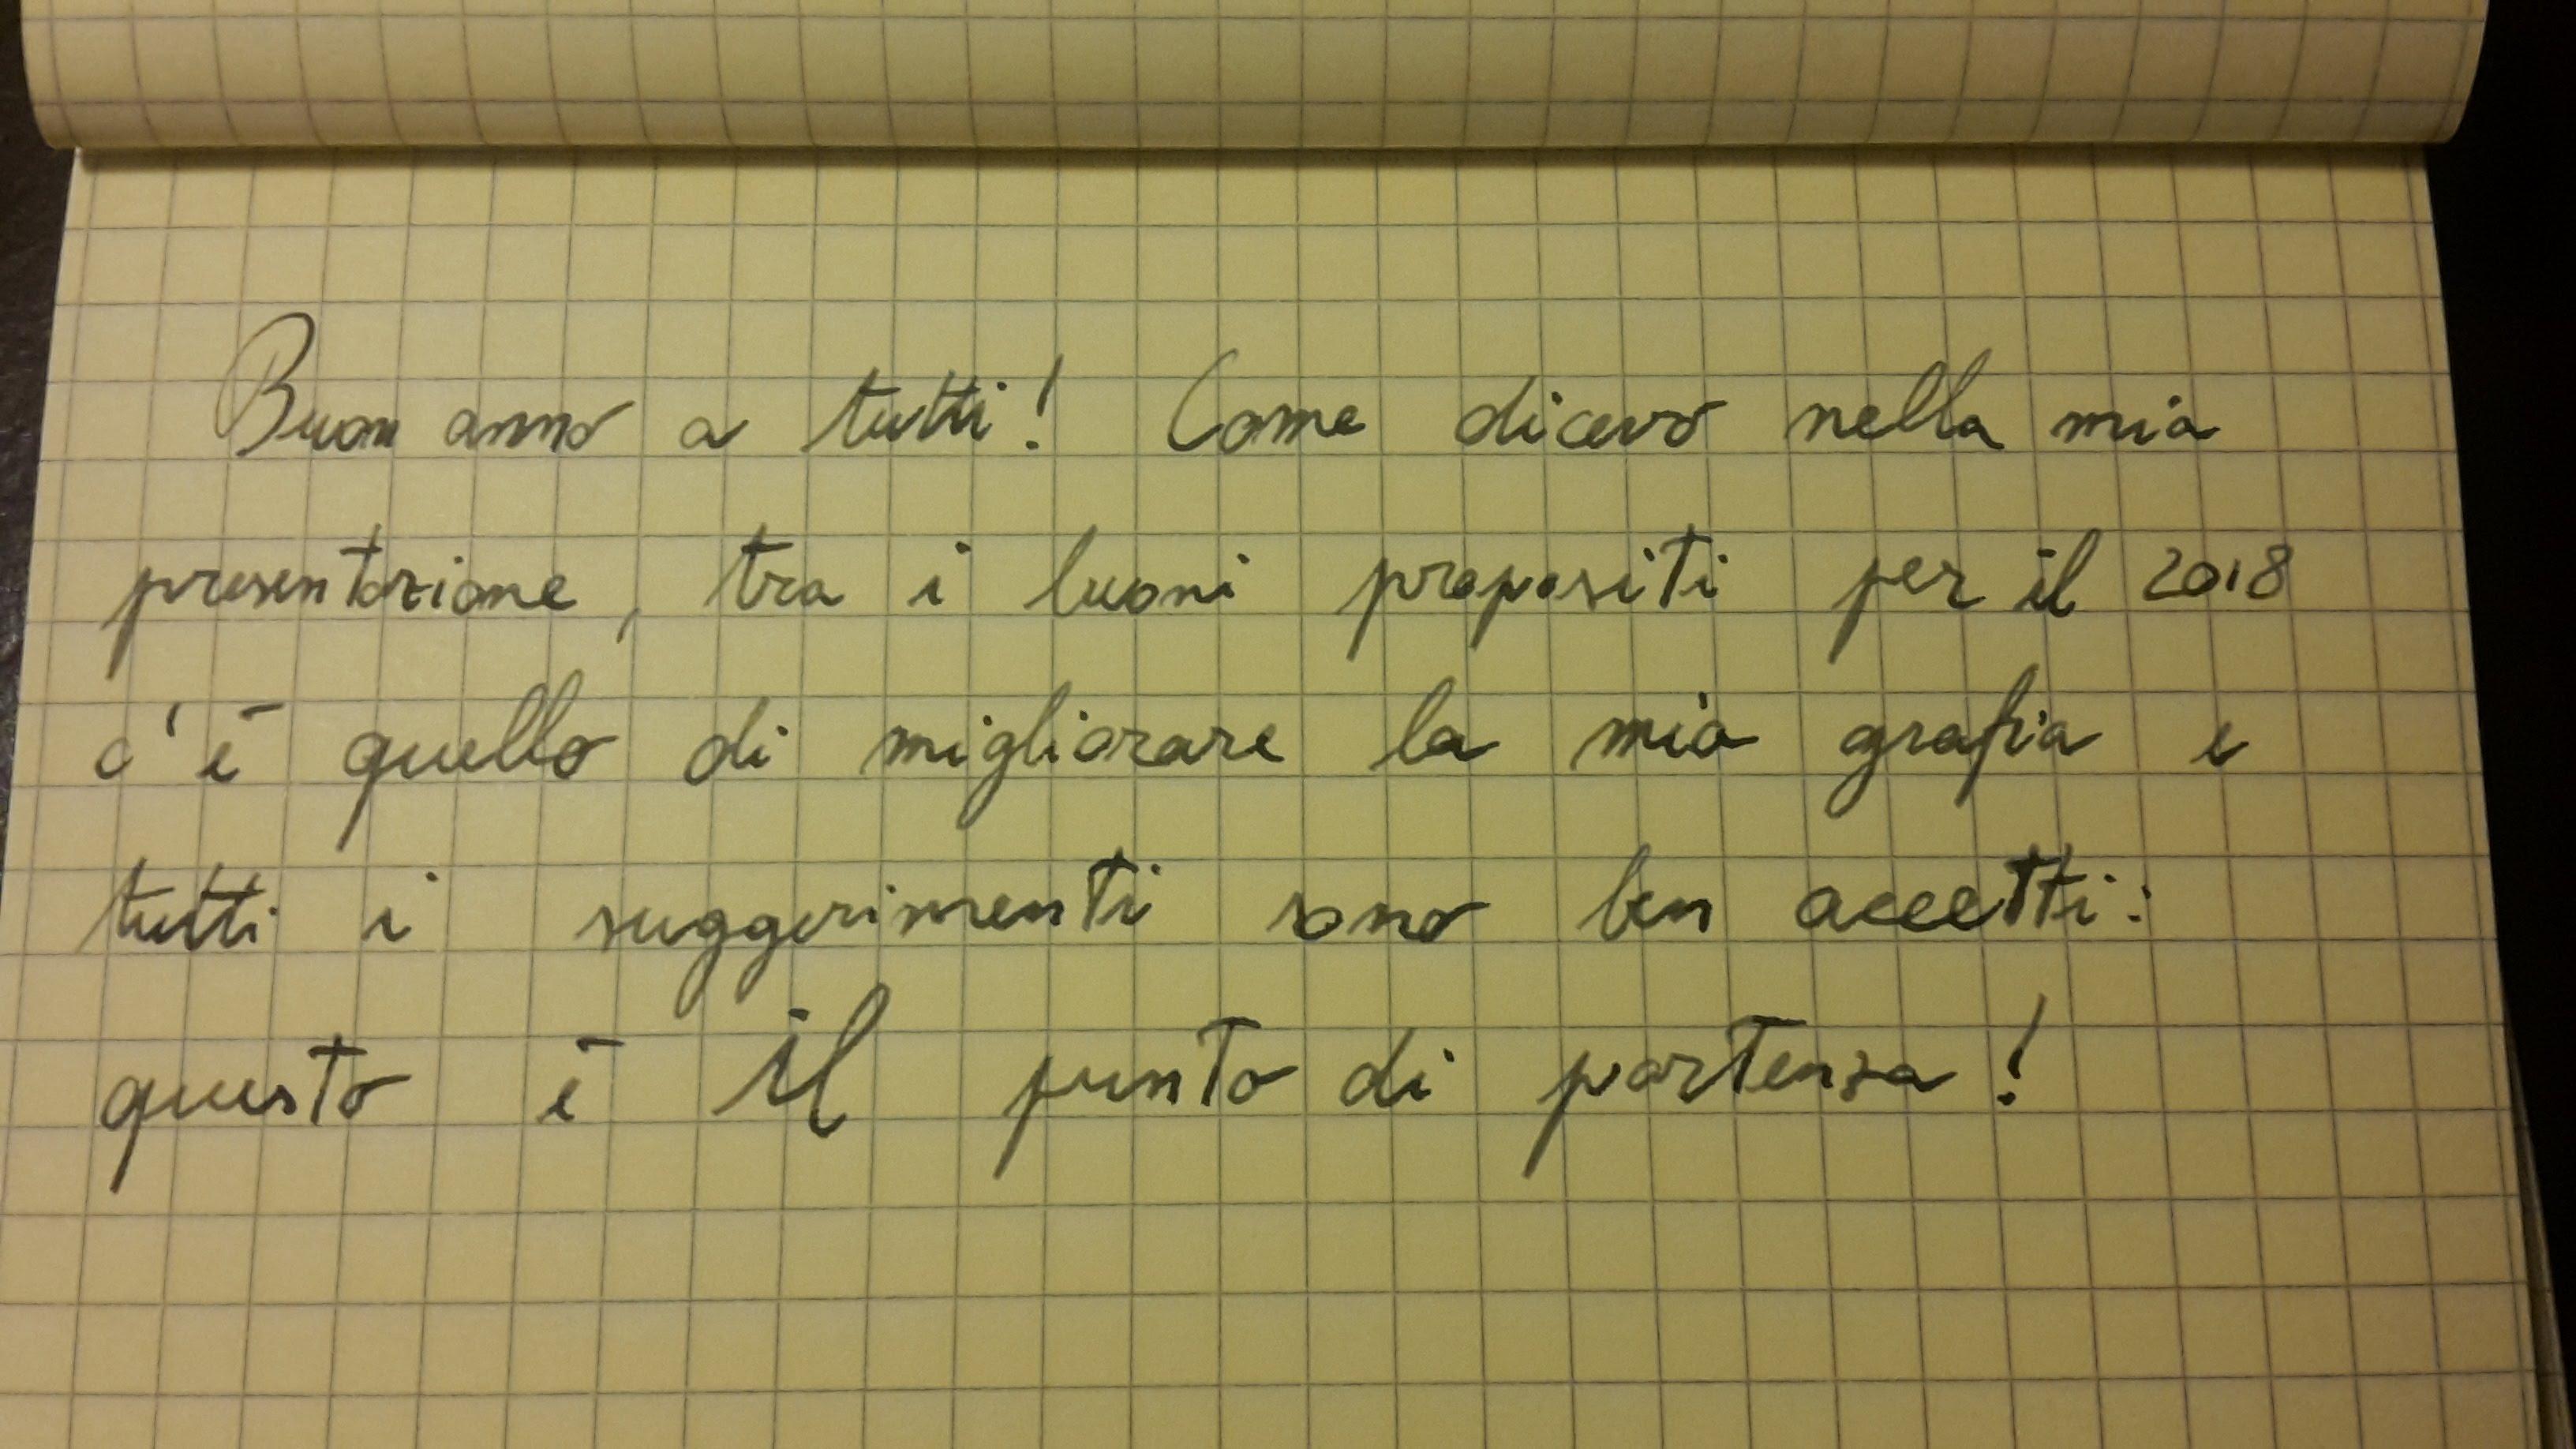 Buon anno a tutti! Come dicevo nella mia
presentazione, tra i buoni propositi per il 2018
c'è quello di migliorare la mia grafia e
tutti i suggerimenti sono ben accetti:
questo è il punto di partenza!